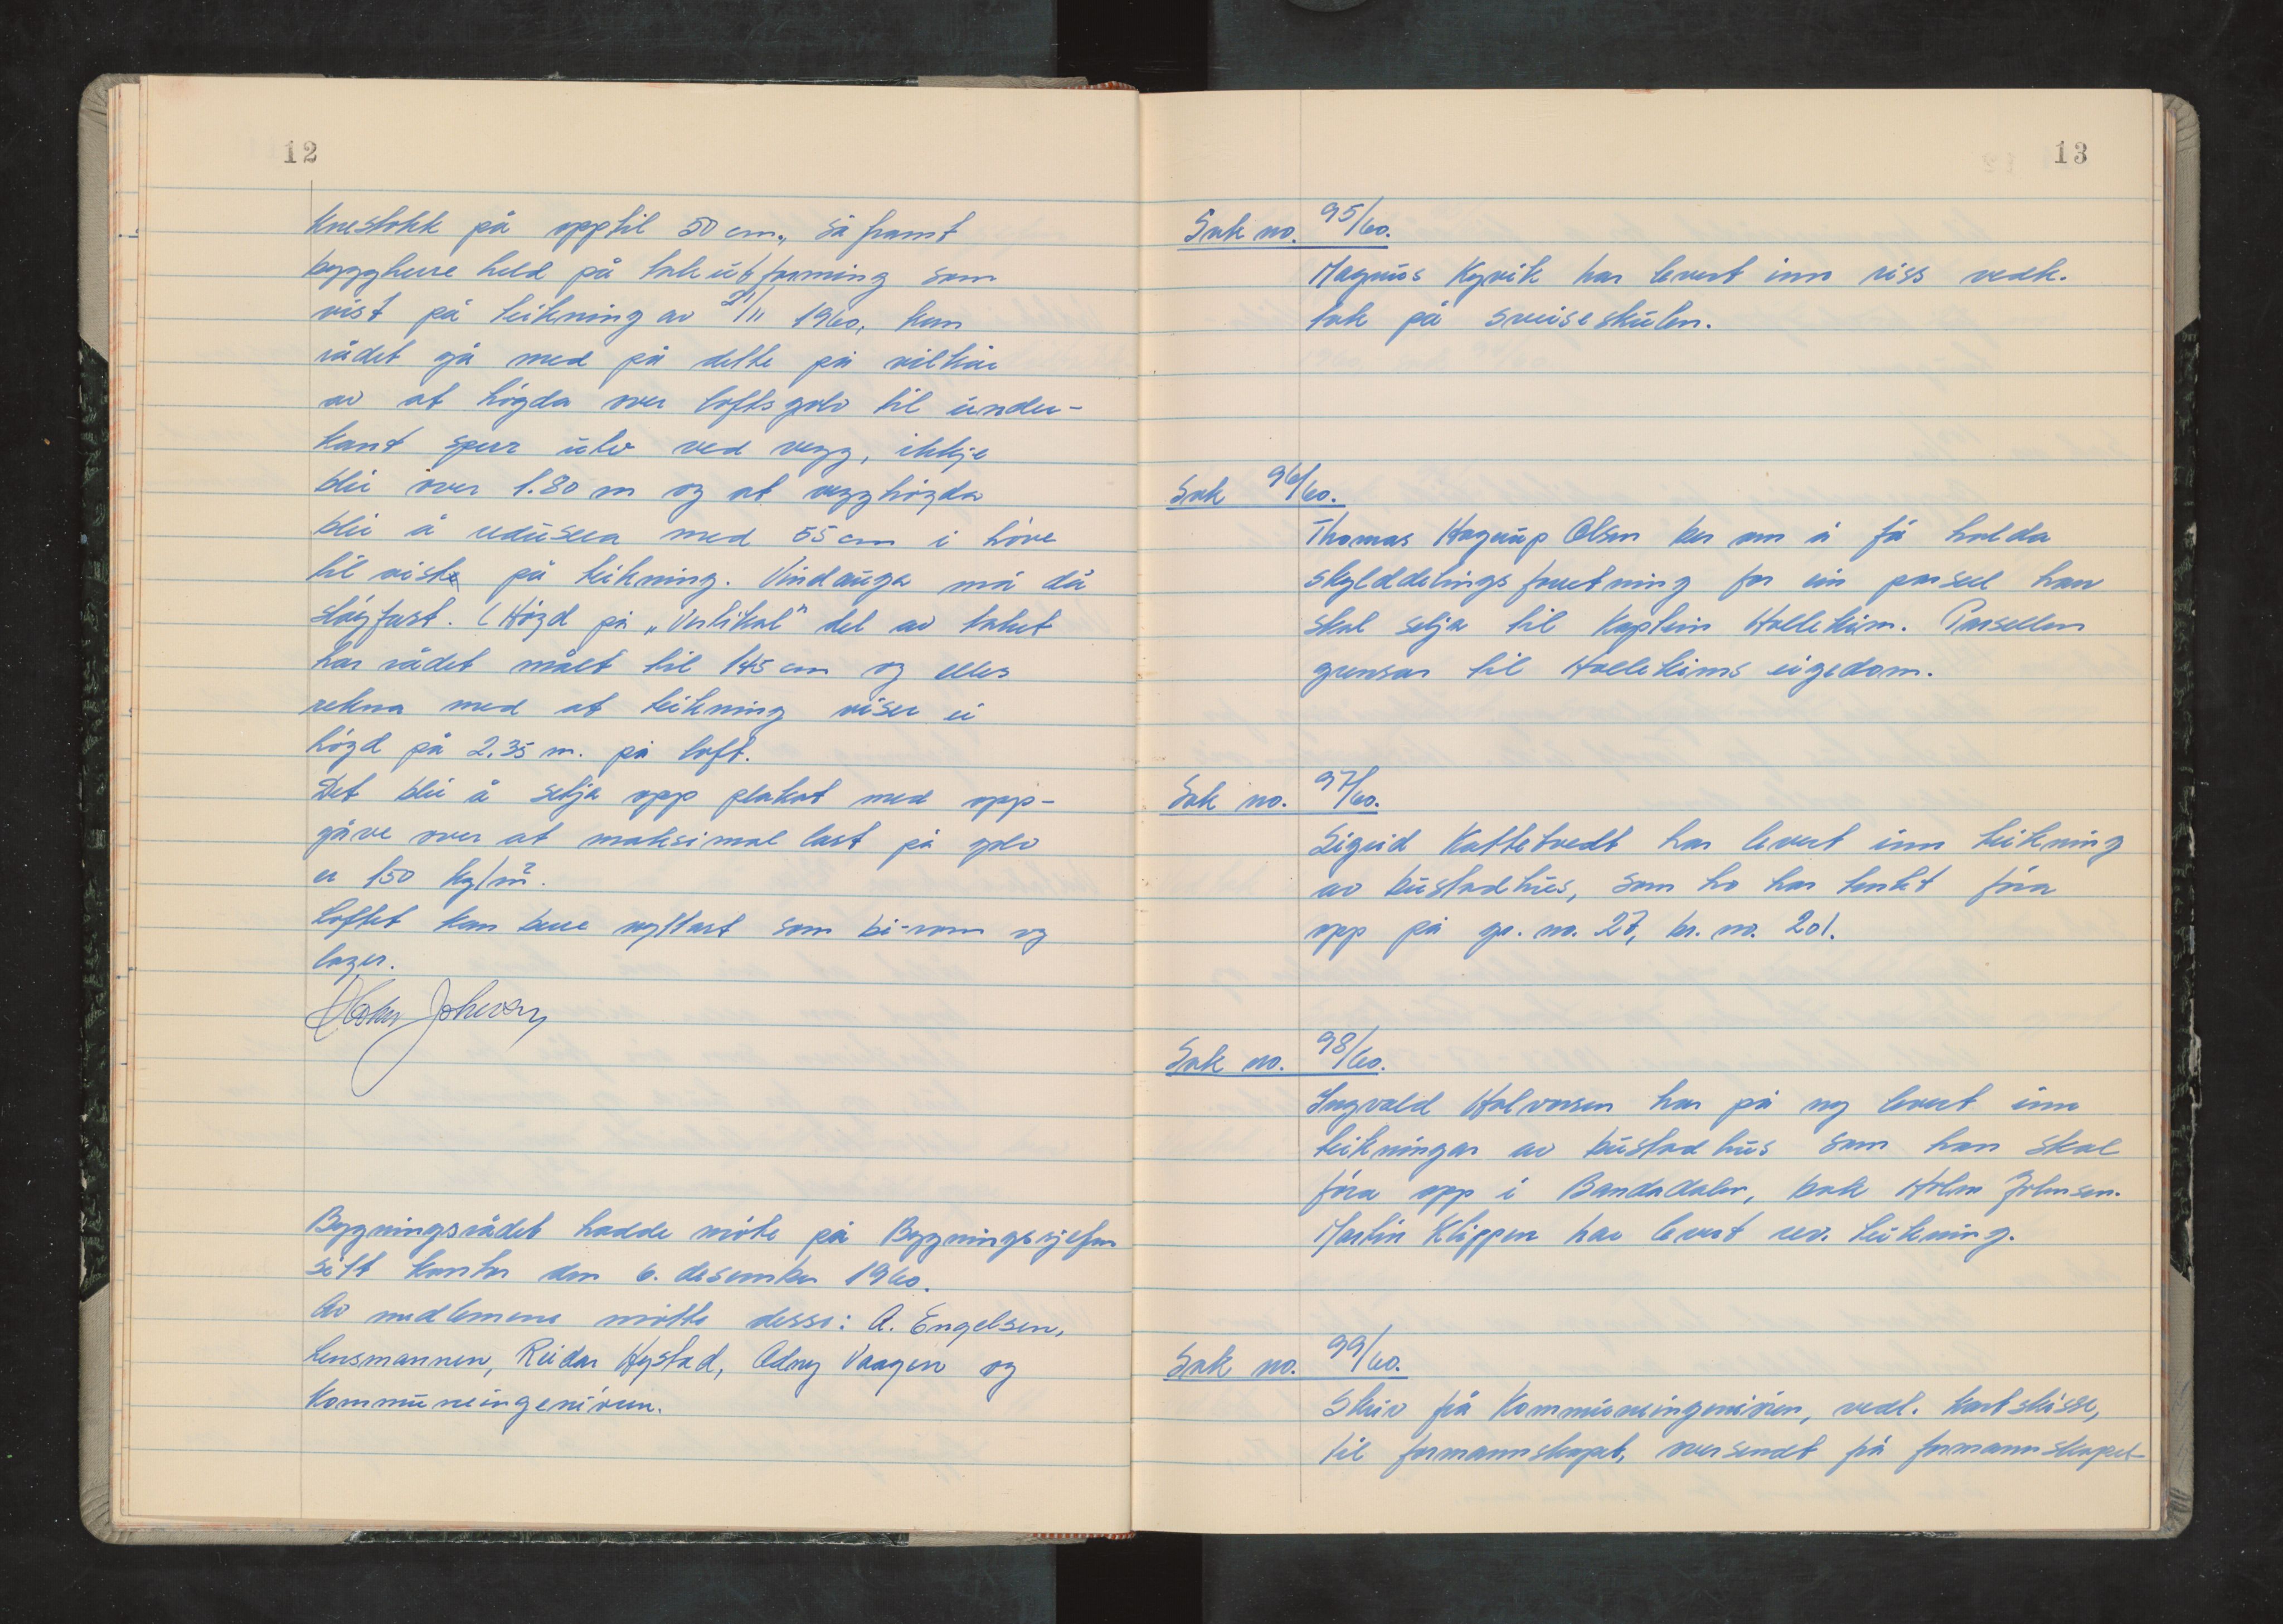 12
Knestokk på opptil 50 cm., så framt
byggherre held på takutforming som
vist på teikning av 21/11 1960, kan
rådet gå med på dette på vilkår
av at högda over loftsgolv til under-
kant sperr utv ved vegg, ikkje
blir över 1.80 m og at vegghögda
blir å redusera med 55 cm i höve
til vist på teikning. Vindauga må då
slöyfast. (Högd på „Vertikal" del av taket
har rådet målt til 145 cm og elles
rekna med at teikning viser ei
högd på 2,35 m. på loft.
Det blir å setja opp plakat med opp-
gåve over at maksimal last på golv
er 150 kg/m².
Loftet kan bare nyttast som bi-rom og
lager.
Johnsen
Bygningsrådet hadde möte på Bygningssjefen
sitt kontor den 6. desember 1960.
Av medlemene mötte desse: A. Engelsen,
lensmannen, Reidar Hystad, Odny Vaagen og
Kommuneingeniören.
13
Sak no. 95/60.
Magnus Kyvik har levert inn riss vedk.
tak på sveiseskulen.
Sak 96/60.
Thomas Hagerup Olsen ber om å få halda
skylddelingsforretning for ein parsell han
skal selja til Kaptein Halleheim. Parsellen
grensar til Halleheims eigedom.
Sak no. 97/60.
Sigrid Kattetvedt har levert inn teikning
av bustadhus, som ho har tenkt föra
opp på gr. no. 27, br. no. 201.
Sak no. 98/60.
Ingvald Halvorsen har på ny levert inn
teikningar av bustadhus som han skal
föra opp i Bandadalen, bak Holm Johnsen.
Martin Klippen har levert rev. teikning.
Sak no. 99/60.
Skriv frå Kommuneingeniören, vedl. kartskisse,
til formannskapet, oversendt frå formannskapet